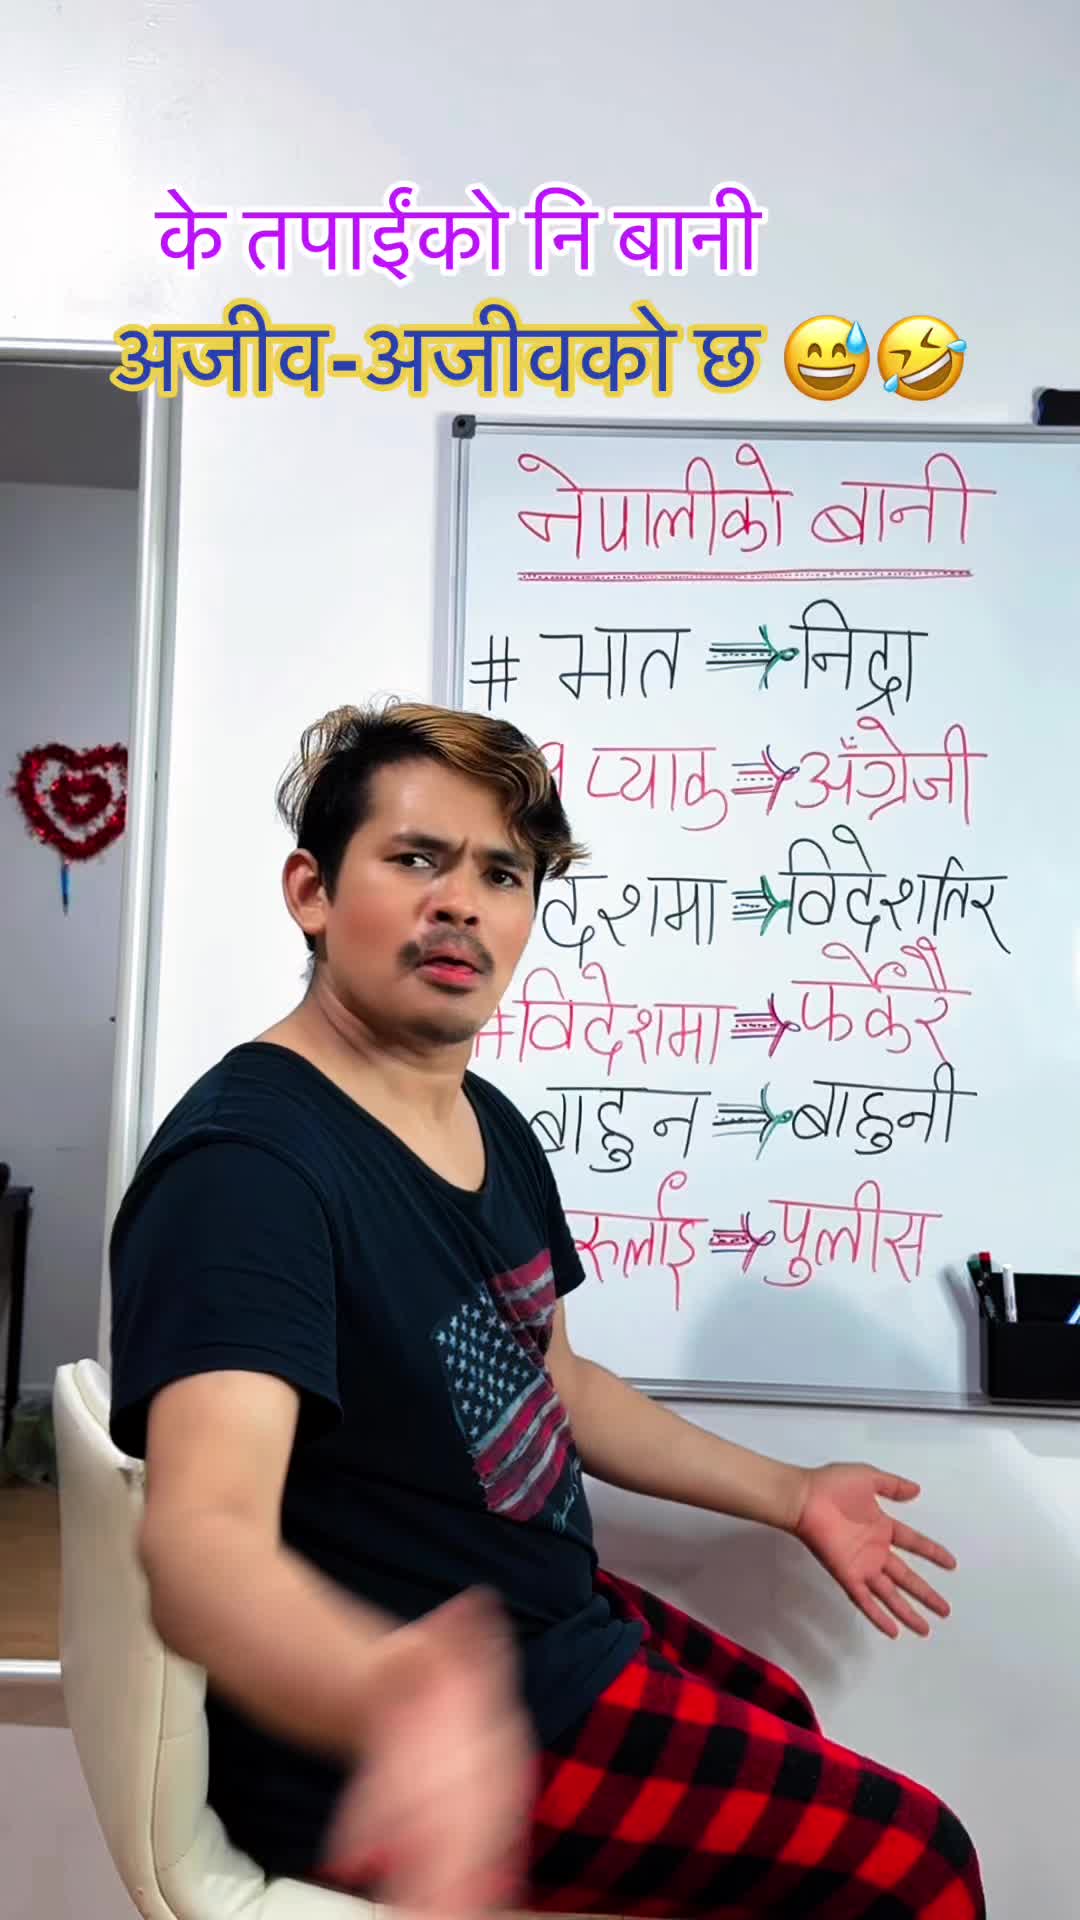 के तपाईंको नि बानी
अजीव-अजीवको छ 😅🤣
नेपालीको बानी
# भात ⇒ निद्रा
प्याक ⇒ अँग्रेजी
देशमा ⇒ विदेशतिर
#विदेशमा ⇒ फर्केरै
बाहुन ⇒ बाहुनी
⇒ पुलीस